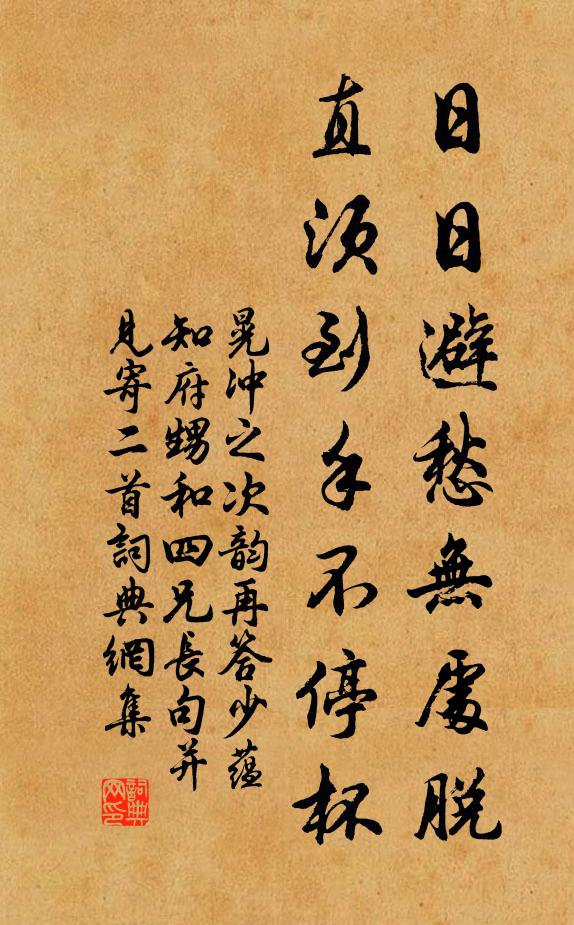 日日避愁無處脱
直須到手不停杯
晃冲之次韵再答少蘊
知府甥和四兄長句并
見寄二首詞典網集
詞典網印